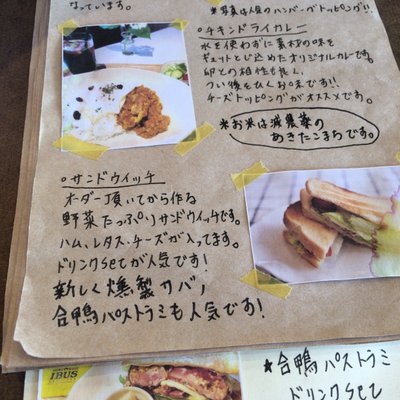 なっています。
※写真は人気のハンバーグトッピング!!
○チキンドライカレー
水を使わずに素材の味を
ギュッとじ込めたオリジナルカレーです。
卵との相性も良く、
つい後をひくお味です!!
チーズトッピングがオススメです。
※お米は減農薬の
あきたこまちです。
○サンドウィッチ
オーダー頂いてから作る
野菜たっぷりサンドウィッチです。
ハム、レタス、チーズが入ってます。
ドリンクSetが人気です!
新しく燻製サバ、
合鴨パストラミも人気です!
IBUS
★合鴨パストラミ
ドリンクSet